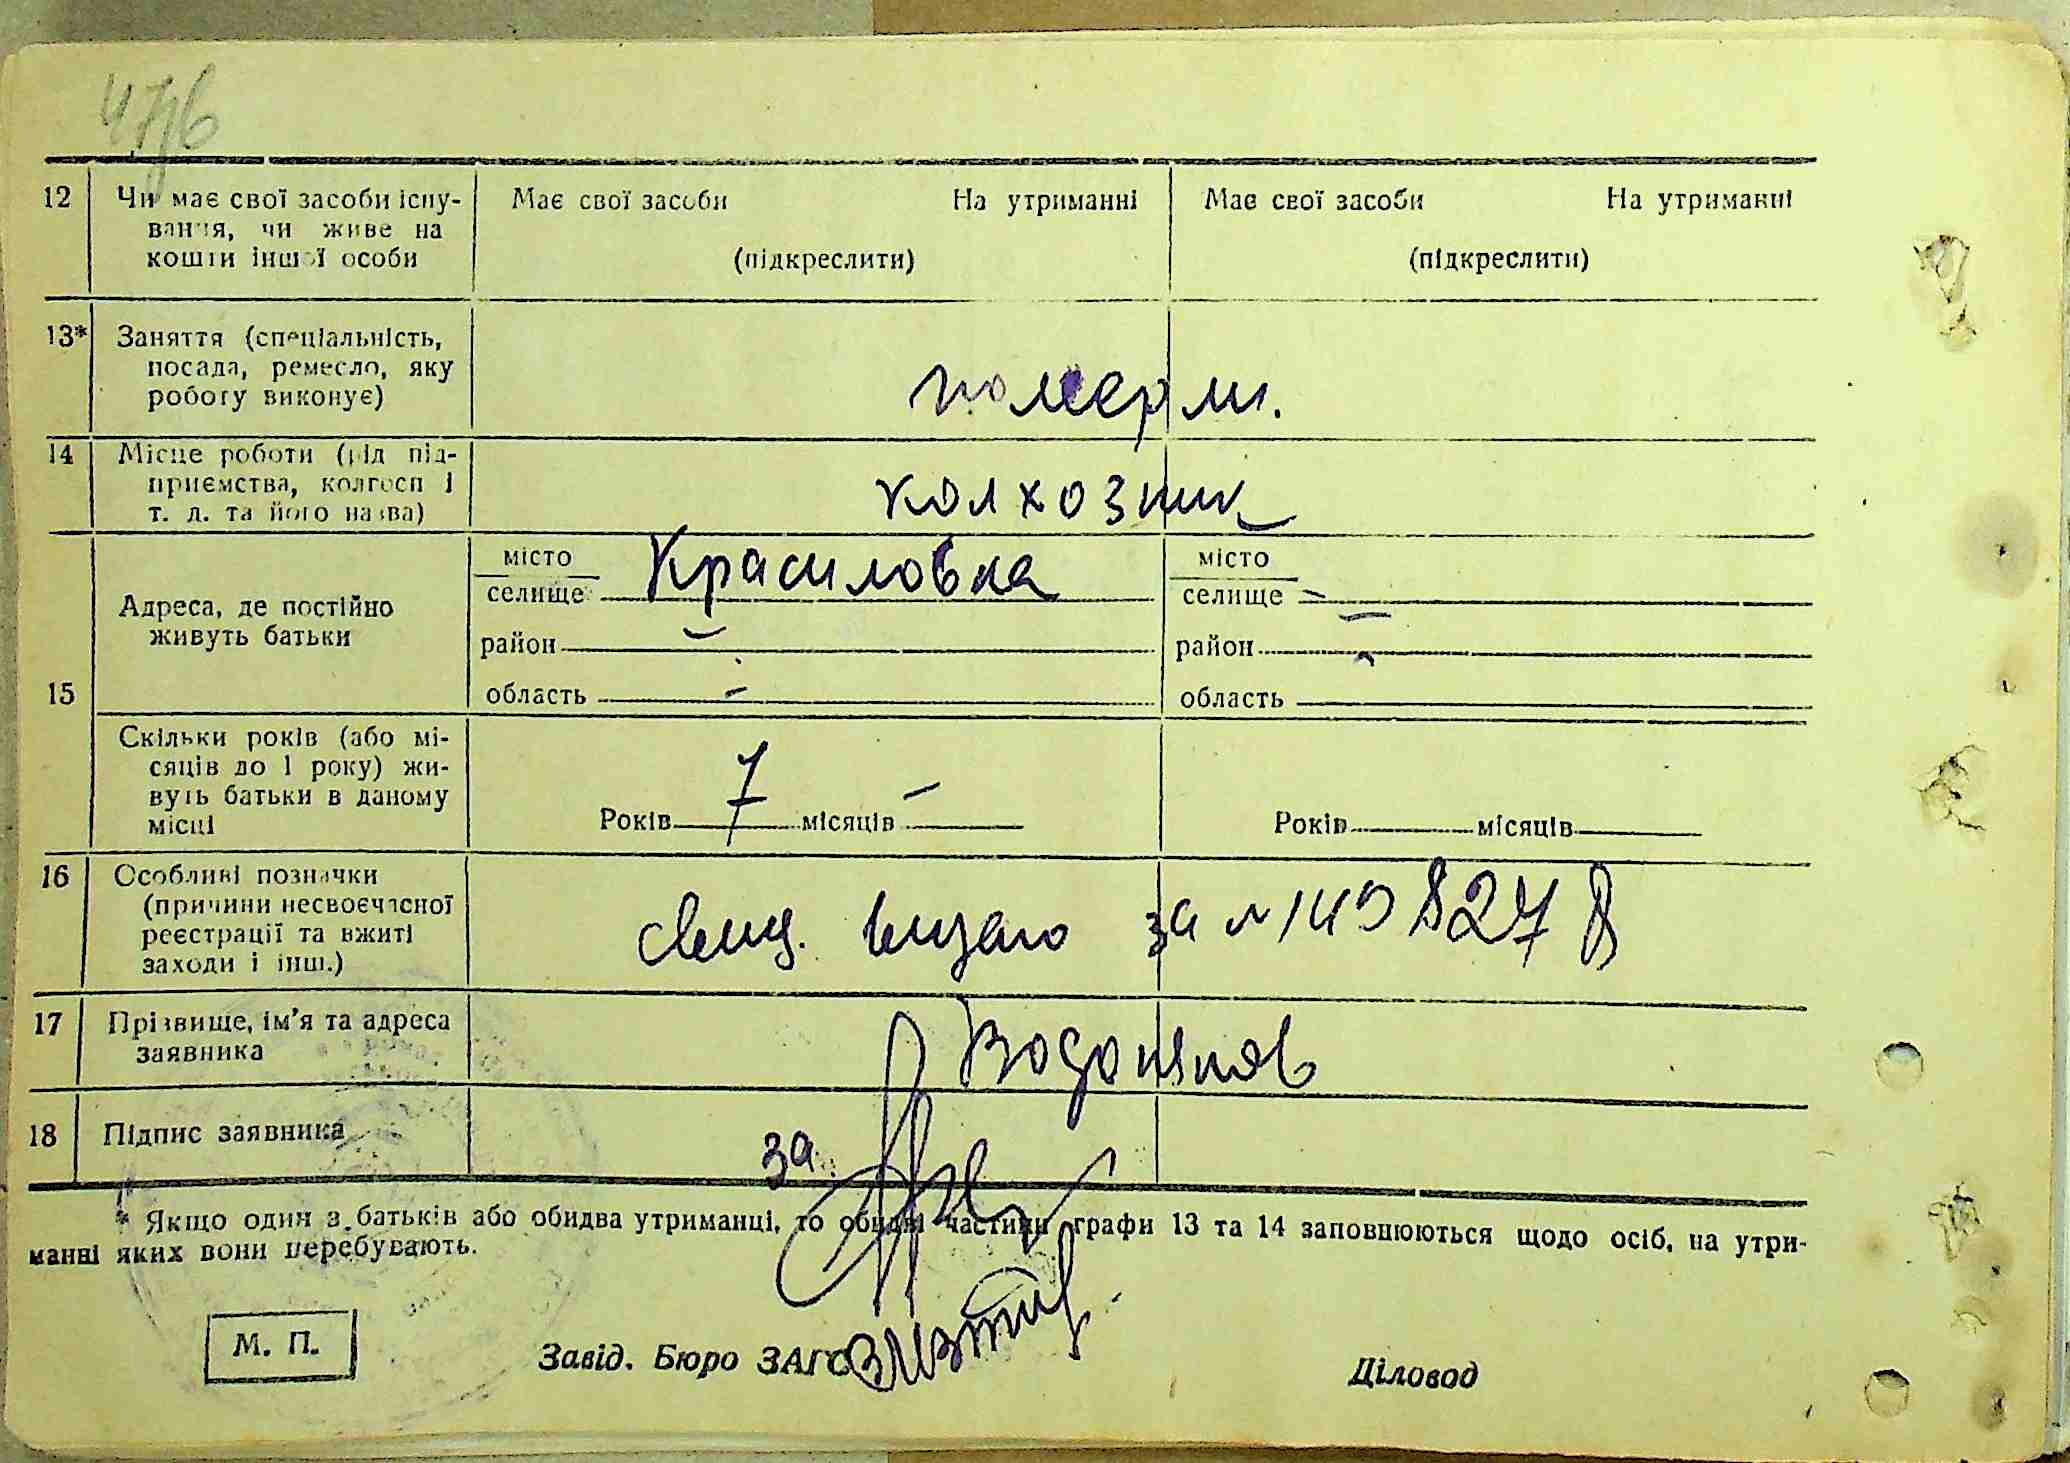 47/6
12 Чи має свої засоби існу- Має свої засоби На утриманні Має свої засоби На утриманні
вання, чи живе на
кошти іншої особи (підкреслити) (підкреслити)
13* Заняття (спеціальність,
посада, ремесло, яку
роботу виконує)
14 Місце роботи (рід під-
приємства, колгосп і колхозник
т. д. та його назва)
15 Адреса, де постійно
живуть батьки
місто
селище Красиловка
район –
область –
місто
селище –
район –
область
Скільки років (або мі-
сяців до 1 року) жи-
вуть батьки в даному
місці
Років 7 місяців – Років місяців
16 Особливі позначки
(причини несвоєчасної
реєстрації та вжиті
заходи і інш.)
за №
17 Прізвище, ім'я та адреса
заявника
Водопянов
18 Підпис заявника за
* Якщо один з батьків або обидва утриманці, то обидві частини графи 13 та 14 заповнюються щодо осіб, на утри-
манні яких вони перебувають.
М. П.
Завід. Бюро ЗАГС
Діловод